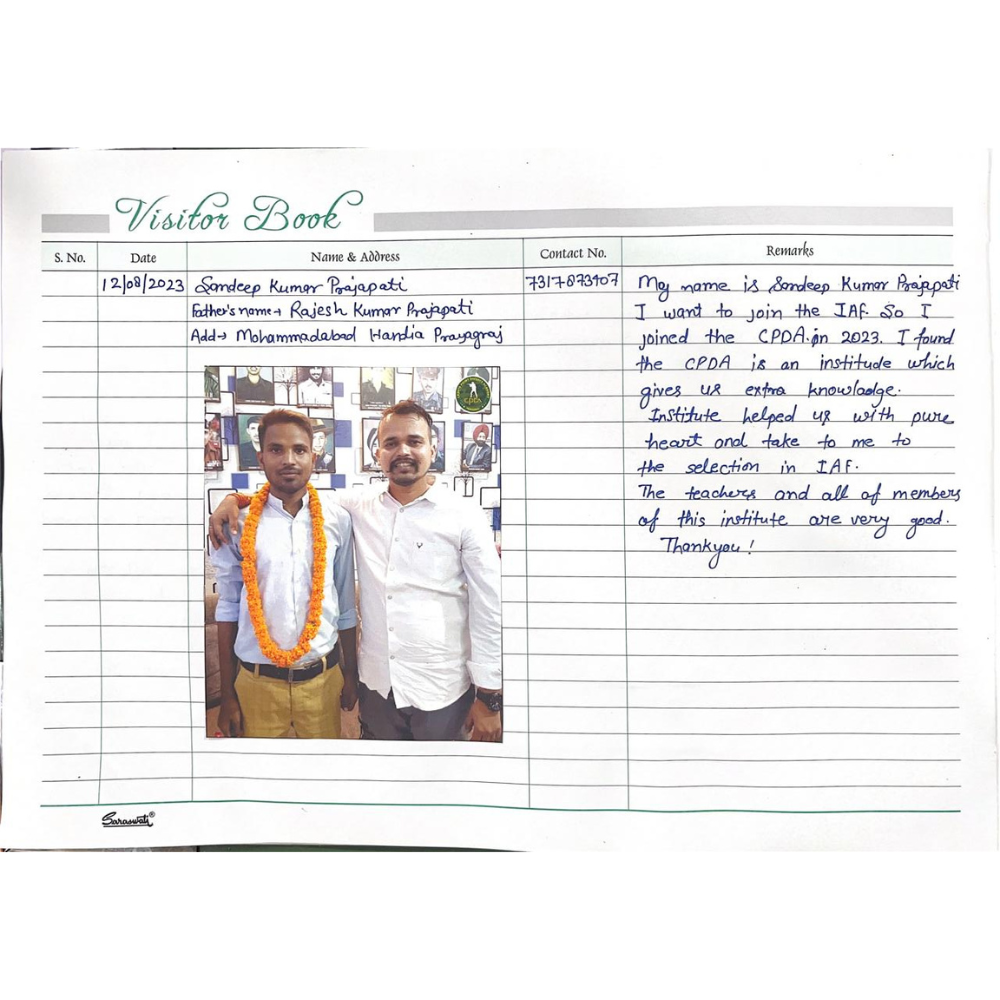 Visitor Book
S. No. Date Name & Address Contact No. Remarks
12/08/2023 Sandeep Kumar Prajapati 7317873407
Father's name → Rajesh Kumar Prajapati
Add → Mohammadabad Handia Prayagraj
My name is Sandeep Kumar Prajapati
I want to join the IAF. So I
joined the CPDA in 2023. I found
the CPDA is an institude which
gives us extra knowladge.
Institute helped us with pure
heart and take to me to
the selection in IAF.
The teachers and all of members
of this institute are very good.
Thankyou !
CPDA
Saraswati®